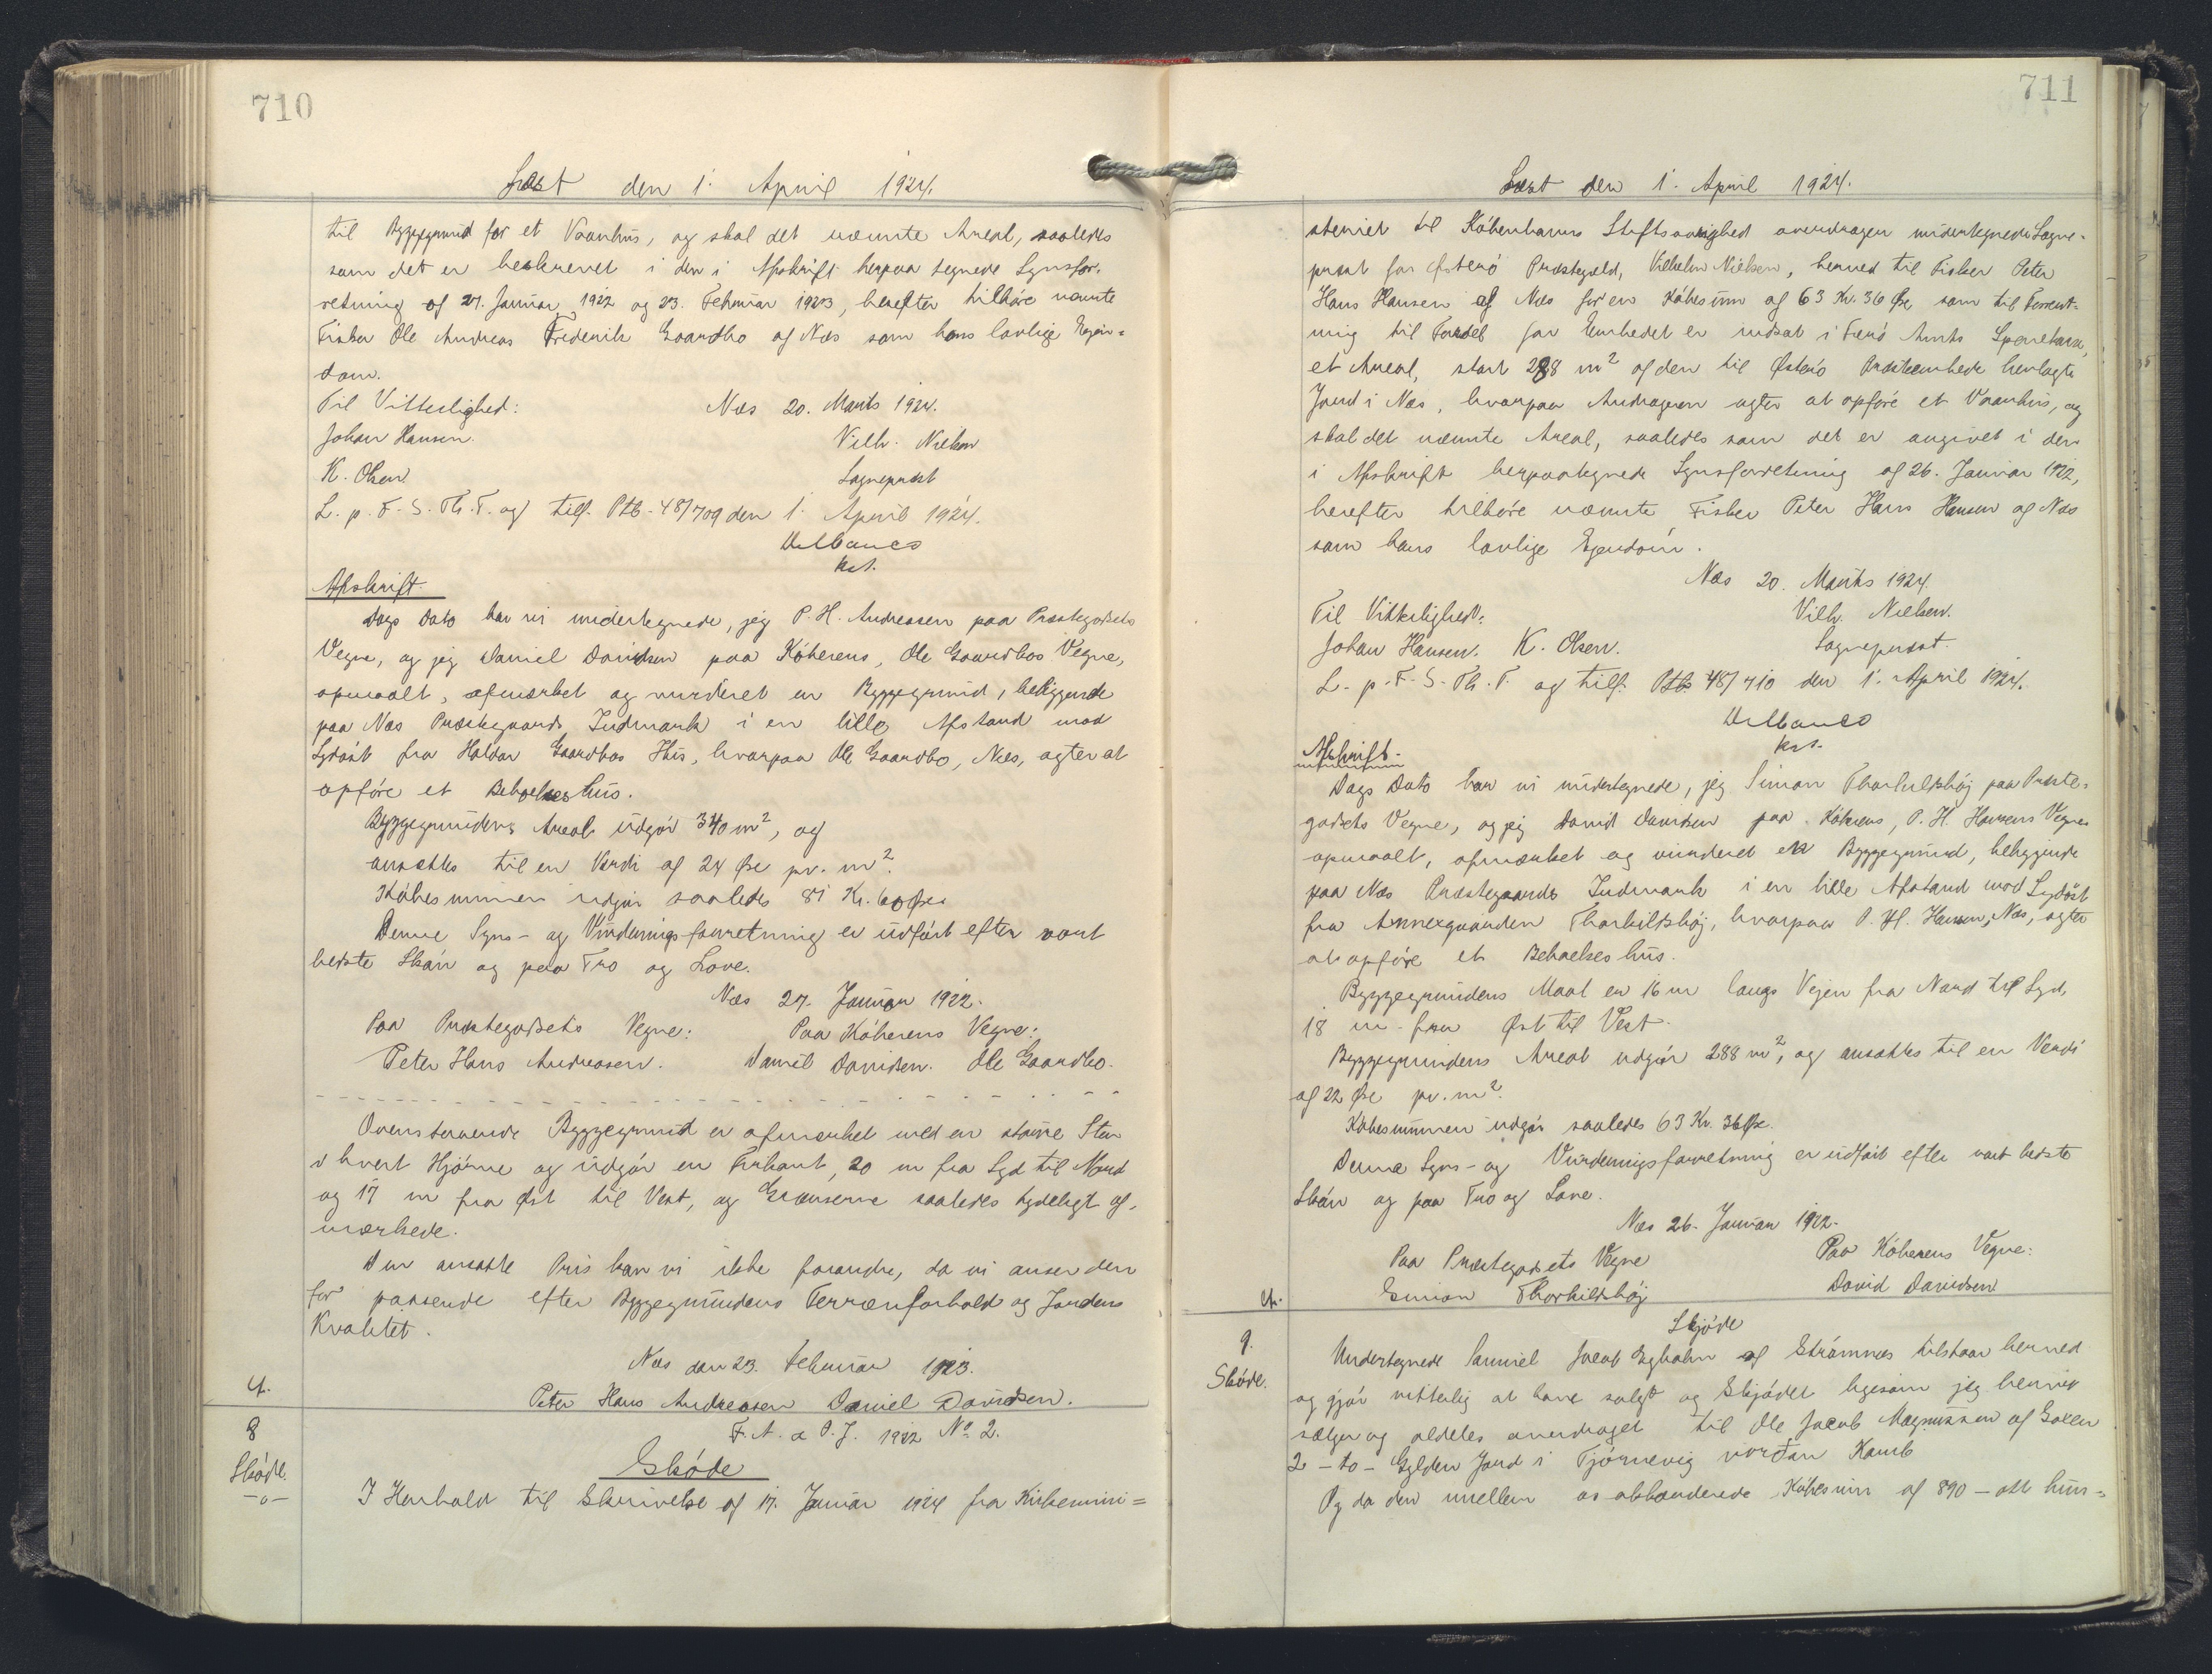 710
Læst den 1. April 1924.
til Byggegrund for et Vaanhus, og skal det nævnte Areal, saaledes
som det er beskrevet i den i Afskrift herpaa tegnede Synsfor-
retning af 27. Januar 1922 og 23. Februar 1923, herefter tilhøre nævnte
Fisker Ole Andreas Frederik Gaardbo af Næs som hans lovlige Ejen-
dom.
Til Vitterlighed: Næs 20. Marts 1924.
Johan Hansen. Vilh. Nielsen
K. Olsen Sognepræst
L. p. F. S. Th. T. og tilf. Ptb. 48/709 den 1. April 1924.
kst.
Afskrift.
Dags Dato har vi undertegnede, jeg P. H. Andreasen paa Præstegodsets
Vegne, og jeg Daniel Davidsen paa Køberens, Ole Gaardbos Vegne,
opmaalt, afmærket og vurderet en Byggegrund, beliggende
paa Næs Præstegaards Indmark i en lille Afstand mod
Sydøst fra Haldor Gaardbos Hus, hvorpaa Ole Gaardbo, Næs, agter at
opføre et Beboelseshus.
Byggegrundens Areal udgør 340 m², og
ansættes til en Værdi af 24 Øre pr. m².
Købesummen udgør saaledes 81 Kr. 60 Øre.
Denne Syns- og Vurderingsforretning er udført efter vort
bedste Skøn og paa Tro og Love.
Næs 27. Januar 1922.
Paa Præstegodsets Vegne: Paa Køberens Vegne:
Peter Hans Andreasen. Daniel Davidsen. Ole Gaardbo.
Ovenstaaende Byggegrund er afmærket med en større Sten
i hvert Hjørne og udgør en Firkant, 20 m fra Syd til Nord
og 17 m fra Øst til Vest, og Grænserne saaledes tydeligt af-
mærkede.
Den ansatte Pris kan vi ikke forandre, da vi anser den
for passende efter Byggegrundens Terrænforhold og Jordens
Kvalitet.
Næs den 23. Februar 1923.
Peter Hans Andreasen Daniel Davidsen.
8 F. A. a P. J. 1922 No 2.
Skøde
-o-
Skøde
I Henhold til Skrivelse af 17. Januar 1924 fra Kirkemini=
711
Læst den 1. April 1924.
steriet til Københavns Stiftsøvrighed overdrager undertegnede Sogne-
præst for Østerø Præstegæld, Vilhelm Nielsen, herved til Fisker Peter
Hans Hansen af Næs for en Købesum af 63 Kr. 36 Øre som til Forrent-
ning til Fordel for Embedet er indsat i Færø Amts Sparekasse,
et Areal, stort 288 m² af den til Østerø Præsteembede henlagte
Jord i Næs, hvorpaa Andrageren agter at opføre et Vaanhus, og
skal det nævnte Areal, saaledes som det er angivet i den
i Afskrift herpaategnede Synsforretning af 26. Januar 1922,
herefter tilhøre nævnte Fisker Peter Hans Hansen af Næs
som hans lovlige Ejendom.
Næs 20. Marts 1924.
Til Vitterlighed: Vilh. Nielsen.
Johan Hansen. K. Olsen. Sognepræst.
L. p. F. S. Th. T. og tilf. Ptb 48/710 den 1. April 1924.
kst.
Afskrift.
Dags Dato har vi undertegnede, jeg Simon Thorkilshøj paa Præste-
godsets Vegne, og jeg David Davidsen paa Køberens, P. H. Hansens Vegne
opmaalt, afmærket og vurderet en Byggegrund, beliggende
paa Næs Præstegaards Indmark i en lille Afstand mod Sydøst
fra Annexgaarden Thorkilshøj, hvorpaa P. H. Hansen, Næs, agter
at opføre et Beboelseshus.
Byggegrundens Maal er 16 m langs Vejen fra Nord til Syd,
18 m fra Øst til Vest.
Byggegrundens Areal udgør 288 m², og ansættes til en Værdi
af 22 Øre pr. m².
Købesummen udgør saaledes 63 Kr. 36 Øre.
Denne Syns- og Vurderingsforretning er udført efter vort bedste
Skøn og paa Tro og Love.
Næs 26. Januar 1922.
Paa Præstegodsets Vegne Paa Køberens Vegne:
Simon Thorkilshøj David Davidsen
Skjøde
9.
Skøde.
Undertegnede Samuel Jacob Egholm af Strømnæs tilstaar herved
og gjør vitterlig at have solgt og Skjødet ligesom jeg herved
sælger og aldeles overdraget til Ole Jacob Magnussen af Haller
2 - to - Gylden Jord i Tjørnevig norðan Kamb
Og da den mellem os akkorderede Købesum af 890 - ott hun=